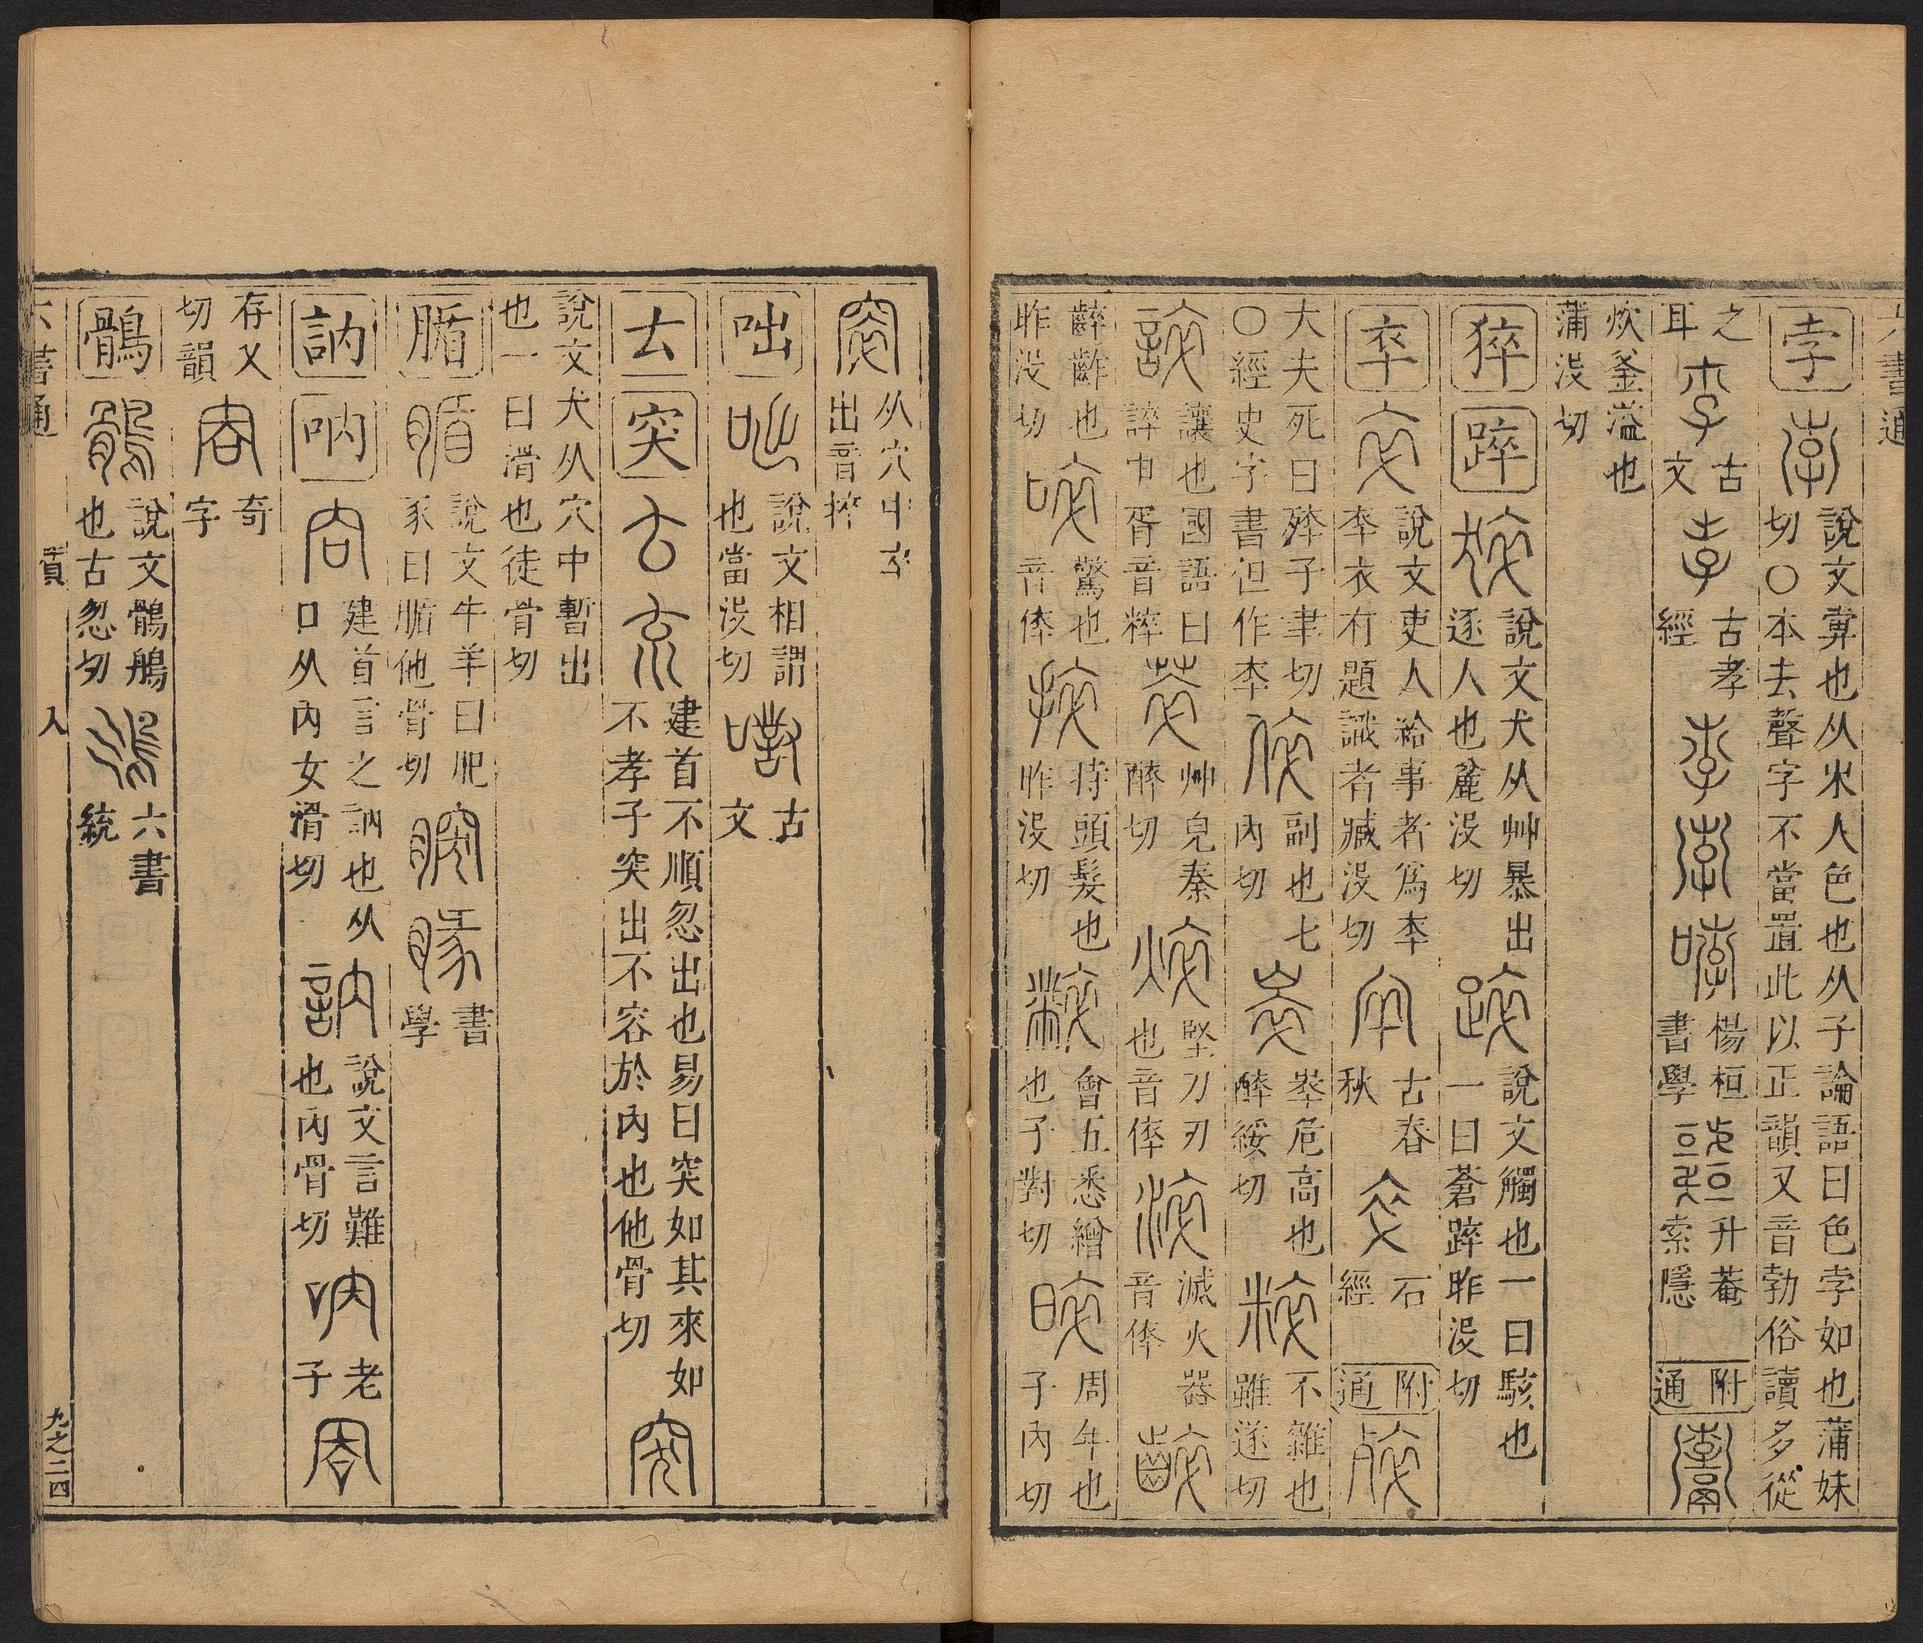 六書通
孛 說文𢍁也从米人色也从子論語曰色孛如也蒲妹
切〇本去聲字不當置此以正韻又音勃俗讀多從
之
耳 古
文 古孝
經 楊桓
書學 升菴
索隱 附
通
炊釜溢也
蒲沒切
猝 踤 說文犬从艸暴出
逐人也麄沒切 說文觸也一曰駭也
一曰蒼踤昨沒切
卒 說文吏人給事者為卒
卒衣有題識者臧沒切 古春
秋 石
經 附
通
大夫死曰 子聿切 副也七
〇經史字書但作卒 內切 崒危高也
醉綏切 不雜也
雖遂切
讓也國語曰
誶申胥音粹 艸皃秦
醉切 堅刀刃
也音倅 滅火器
音倅
齰也
昨沒切 驚也
音倅 持頭髮也
昨沒切 會五悉繒
也子對切 周年也
子內切
从穴中卒
出音捽
咄 說文相謂
也當沒切 古
文
𠫓 突 建首不順忽出也易曰突如其來如
不孝子突出不容於內也他骨切
說文犬从穴中暫出
也一曰滑也徒骨切
腯 說文牛羊曰肥
豕曰腯他骨切 書
學
訥 吶 建首言之訥也从
口从內女滑切 說文言難
也內骨切 老
子
存乂
切韻 奇
字
鶻 說文鶻鵃
也古忽切 六書
統
六書通 質 入 九之二四